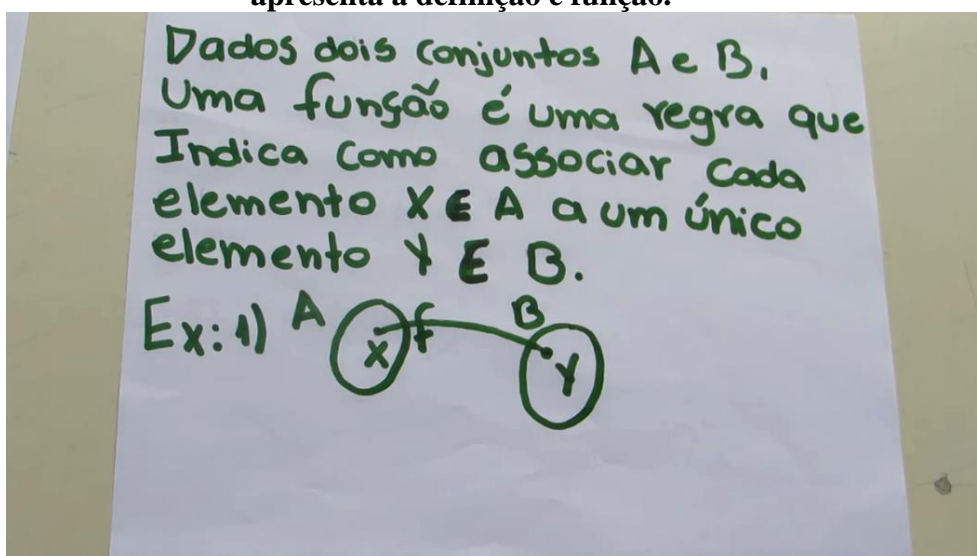 apresenta a definição e função.
Dados dois conjuntos A e B.
Uma função é uma regra que
Indica Como associar Cada
elemento X ∈ A a um único
elemento Y ∈ B.
Ex: 1) A X f B Y